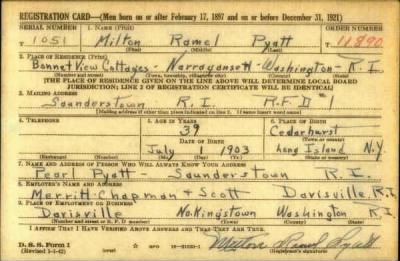 REGISTRATION CARD—(Men born on or after February 17, 1897 and on or before December 31, 1921)
SERIAL NUMBER 1. NAME (Print) ORDER NUMBER
T 1051 Milton Ramel Pyatt T 11890
(First) (Middle) (Last)
2. PLACE OF RESIDENCE (Print)
Bonnet View Cottages - Narragansett - Washington - R.I.
(Number and street) (Town, township, village, or city) (County) (State)
[THE PLACE OF RESIDENCE GIVEN ON THE LINE ABOVE WILL DETERMINE LOCAL BOARD
JURISDICTION; LINE 2 OF REGISTRATION CERTIFICATE WILL BE IDENTICAL]
3. MAILING ADDRESS
Saunderstown R.I. R.F.D. 1
[Mailing address if other than place indicated on line 2. If same insert word same]
4. TELEPHONE 5. AGE IN YEARS 6. PLACE OF BIRTH
39 Cedarhurst
DATE OF BIRTH (Town or county)
July 1 1903 Long Island N.Y.
(Exchange) (Number) (Mo.) (Day) (Yr.) (State or country)
7. NAME AND ADDRESS OF PERSON WHO WILL ALWAYS KNOW YOUR ADDRESS
Pearl Pyatt - Saunderstown R.I.
8. EMPLOYER'S NAME AND ADDRESS
Merritt-Chapman & Scott Davisville, R.I.
9. PLACE OF EMPLOYMENT OR BUSINESS
Davisville No. Kingstown Washington R.I.
(Number and street or R. F. D. number) (Town) (County) (State)
I AFFIRM THAT I HAVE VERIFIED ABOVE ANSWERS AND THAT THEY ARE TRUE.
D. S. S. Form 1
(Revised 1-1-42) GPO Milton Ramel Pyatt
(Registrant's signature)